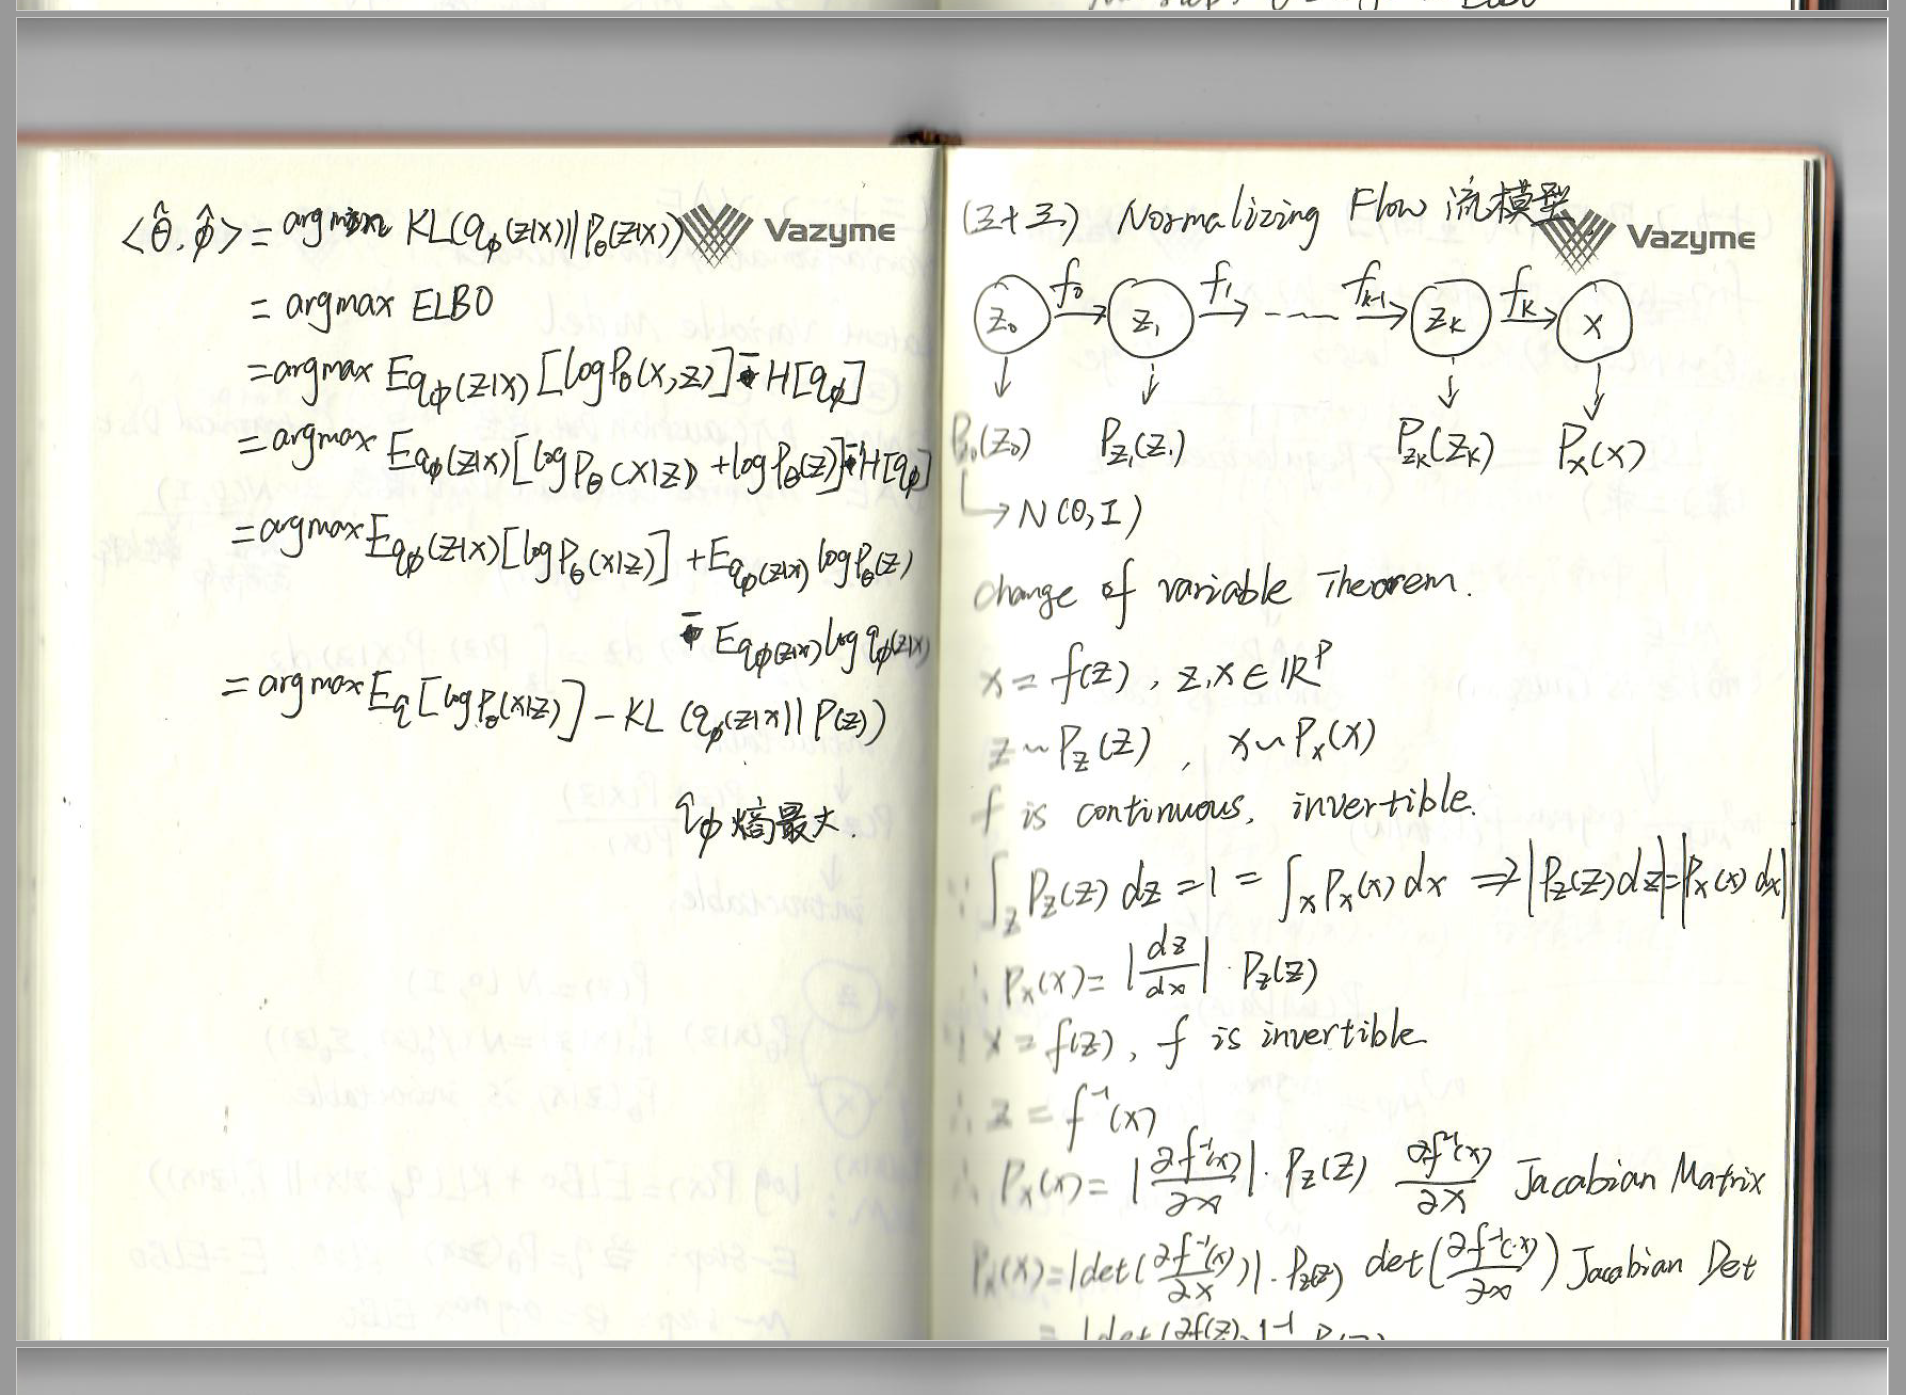 <θ̂.φ̂> = argmin KL(qφ(z|x)||Pθ(z|x))
Vazyme
= argmax ELBO
= argmax Eqφ(z|x) [log Pθ(x,z)] - H[qφ]
= argmax Eqφ(z|x) [log Pθ(x|z) + log Pθ(z)] - H[qφ]
= argmax Eqφ(z|x) [log Pθ(x|z)] + Eqφ(z|x) log Pθ(z)
- Eqφ(z|x) log qφ(z|x)
= argmax Eq [log Pθ(x|z)] - KL (qφ(z|x)||P(z))
qφ 熵最大.
(三十三) Normalizing Flow 流模型
Vazyme
z₀ f₀→ z₁ f₁→ ---- fk-1→ zk fk→ x
↓ ↓ ↓ ↓
(z₀) Pz₁(z₁) Pzk(zk) Px(x)
→ N(0,I)
change of variable Theorem.
x = f(z), z,x ∈ ℝᴾ
z ~ Pz(z), x ~ Px(x)
f is continuous, invertible.
∵ ∫z Pz(z) dz = 1 = ∫x Px(x) dx ⇒ |Pz(z) dz| = |Px(x) dx|
∴ Px(x) = |dz/dx| · Pz(z)
∵ x = f(z), f is invertible
∴ z = f⁻¹(x)
∴ Px(x) = |∂f⁻¹(x)/∂x| · Pz(z) ∂f⁻¹(x)/∂x Jacabian Matrix
Px(x) = |det(∂f⁻¹(x)/∂x)| · Pz(z) det(∂f⁻¹(x)/∂x) Jacabian Det